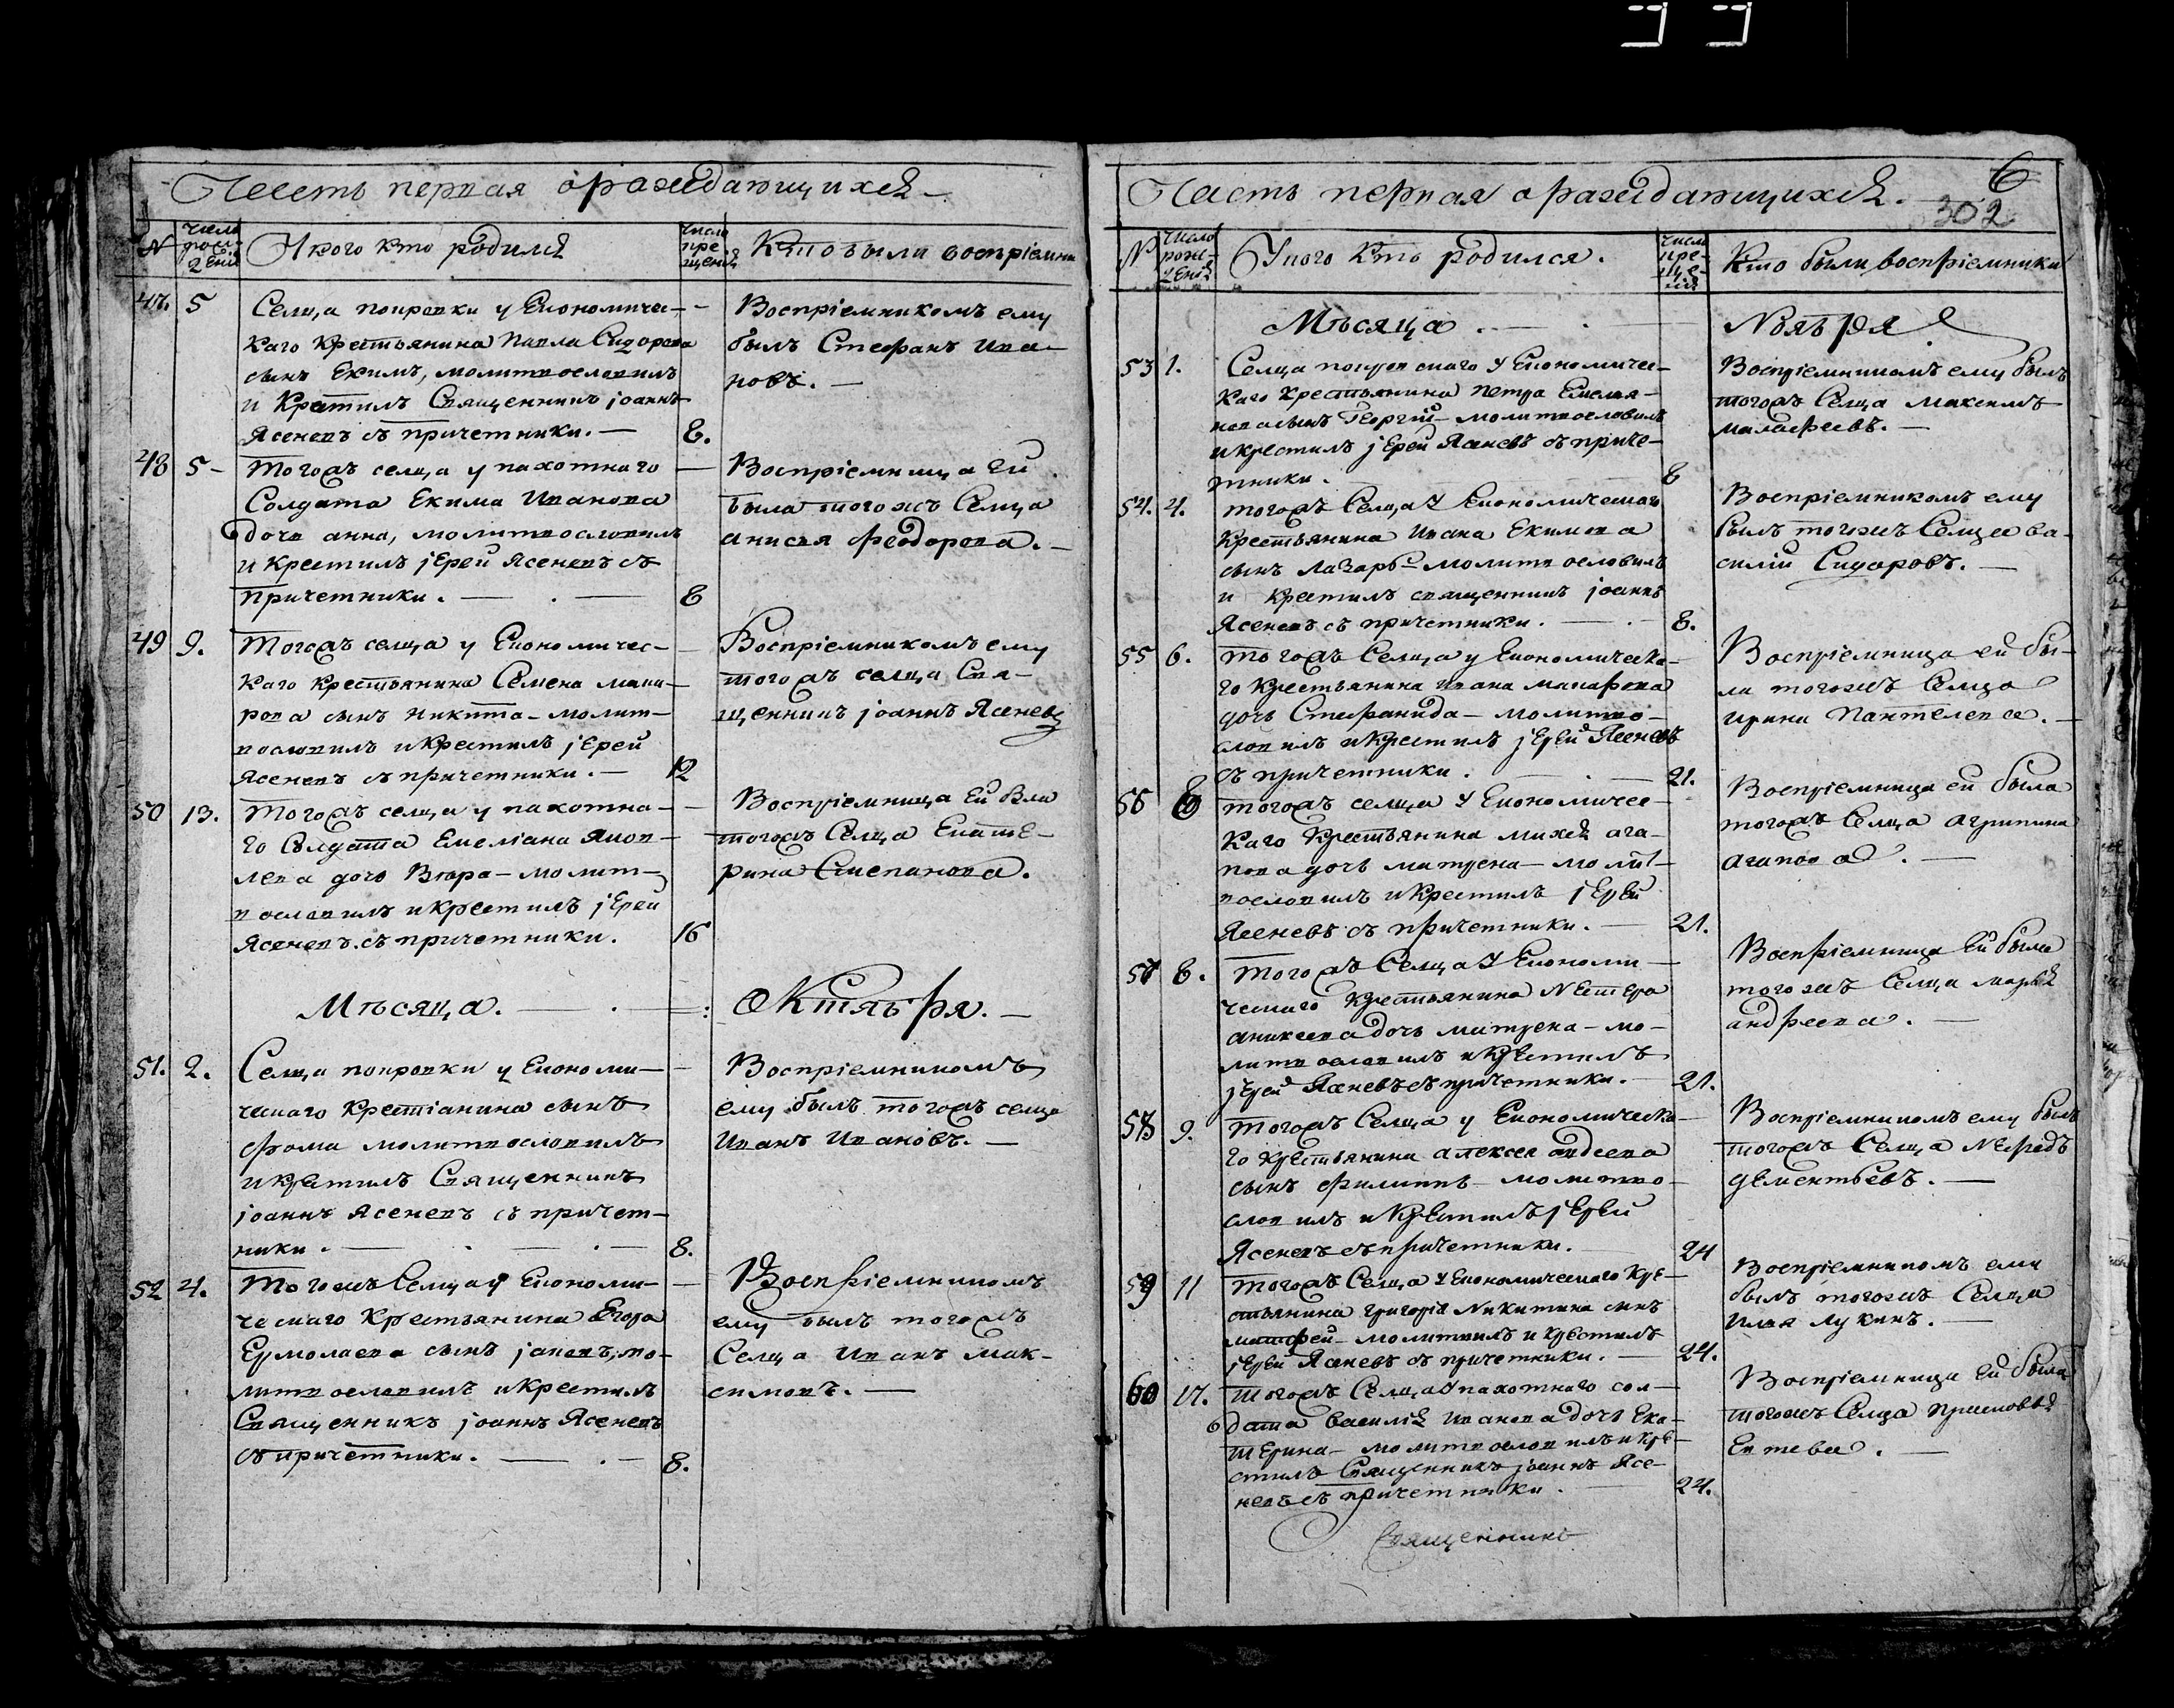 Часть первая о раждающихся
N
число рож- дения
У кого кто родился
число кре щения
Кто были восприемни
47.
5
Селца покровки у Економичес-
каго крестьянина Павла Сидорова
сынъ Екимъ, молитвословилъ
и крестилъ Священникъ јоаннъ
Ясеневъ съ причетники.
8.
Восприемникомъ ему
былъ Стефанъ Ива-
новъ.
48
5
Тогожъ селца у пахотнаго
Солдата Екима Иванова
дочь анна, молитвословилъ
и крестилъ јерей Ясеневъ съ
причетники.
8
Восприемница ей
была тогожъ Селца
анисья феодорова.
49
9.
Тогожъ селца у Економичес-
каго крестьянина Семена мака-
рова сынъ никита - молит-
вословилъ и крестилъ јерей
Ясеневъ съ причетники.
12
Восприемникомъ ему
тогожъ селца Свя-
щенникъ јоаннъ Ясеневъ
50
13.
Тогожъ селца у пахотна-
го Солдата Емелiана Яков-
лева дочь - молит-
вословилъ и крестилъ јерей
Ясеневъ съ причетники.
16
Восприемница ей была
тогожъ Селца Екате-
рина Степанова.
Мѣсяца.
Октября.
51.
2.
Селца покровки у Економи-
ческаго крестiанина сынъ
фома молитвословилъ
и крестилъ Священникъ
јоаннъ Ясеневъ съ причет-
ники.
8.
Восприемникомъ
ему былъ тогожъ селца
Иванъ Ивановъ.
52
4.
Тогожъ Селца у Економи-
ческаго Крестьянина Егора
Ермолаева сынъ јаковъ, мо-
литвословилъ и крестилъ
Священникъ јоаннъ Ясеневъ
съ причетники.
8.
Восприемникомъ
ему былъ тогожъ
Селца Иванъ Мак-
симовъ.
Часть первая о раждающихся.
6
302
N
число рож- дения
У кого кто родился.
число кре- ще- ния
Кто были восприемники
Мѣсяца
Ноября
53
1.
Селца покровскаго у Економичес-
каго крестьянина петра Емелья-
нова сынъ Георгiй - молитвословилъ
и крестилъ јерей Ясеневъ съ приче-
тники.
8
Восприемникомъ ему былъ
тогожъ Селца максимъ
54.
4.
тогожъ Селца У Економическаго
Крестьянина Ивана Екимова
сынъ Лазарь - молитвословилъ
и крестилъ священникъ јоаннъ
Ясеневъ съ причетники.
8.
Восприемникомъ ему
былъ тогожъ Селца ва-
силiй Сидоровъ.
55
6.
тогожъ Селца у Економическа-
го крестьянина ивана макарова
дочь Стефанида - молитво-
словилъ и крестилъ јерей Ясеневъ
съ причетники.
21.
Восприемница ей бы-
ла тогожъ Селца
ирина Пантелева.
56
8
тогожъ селца У Економичес-
каго Крестьянина михея ага-
пова дочь матрена - молит-
вословилъ и крестилъ јерей
Ясеневъ съ причетники.
21.
Восприемница ей была
тогожъ Селца агрипина
агапова.
57
8.
Тогожъ Селца У Економи-
ческаго крестьянина Нестера
аникеева дочь матрена - мо-
литвословилъ и крестилъ
јерей Ясеневъ съ причетники.
21.
Восприемница ей была
тогожъ Селца марья
андреева.
58
9.
тогожъ Селца у Економическа-
го крестьянина алексея авдеева
сынъ филиппъ - молитво-
словилъ и крестилъ јерей
Ясеневъ съ причетники.
24
Восприемникомъ ему былъ
тогожъ Селца Нефедъ
дементьевъ.
59
11
тогожъ Селца У Економическаго Кре-
стьянина григорiя Никитина сынъ
матфей - молитвилъ и крестилъ
јерей Ясеневъ съ причетники.
24.
Восприемникомъ ему
былъ тогожъ Селца
илья лукинъ.
60
17.
тогожъ Селца У пахотнаго сол-
дата Василiя Иванова дочь Ека-
терина - молитвословилъ и кре-
стилъ Священникъ јоаннъ Ясе-
невъ съ причетники.
24.
Восприемница ей была
тогожъ Селца прасковья
Священникъ